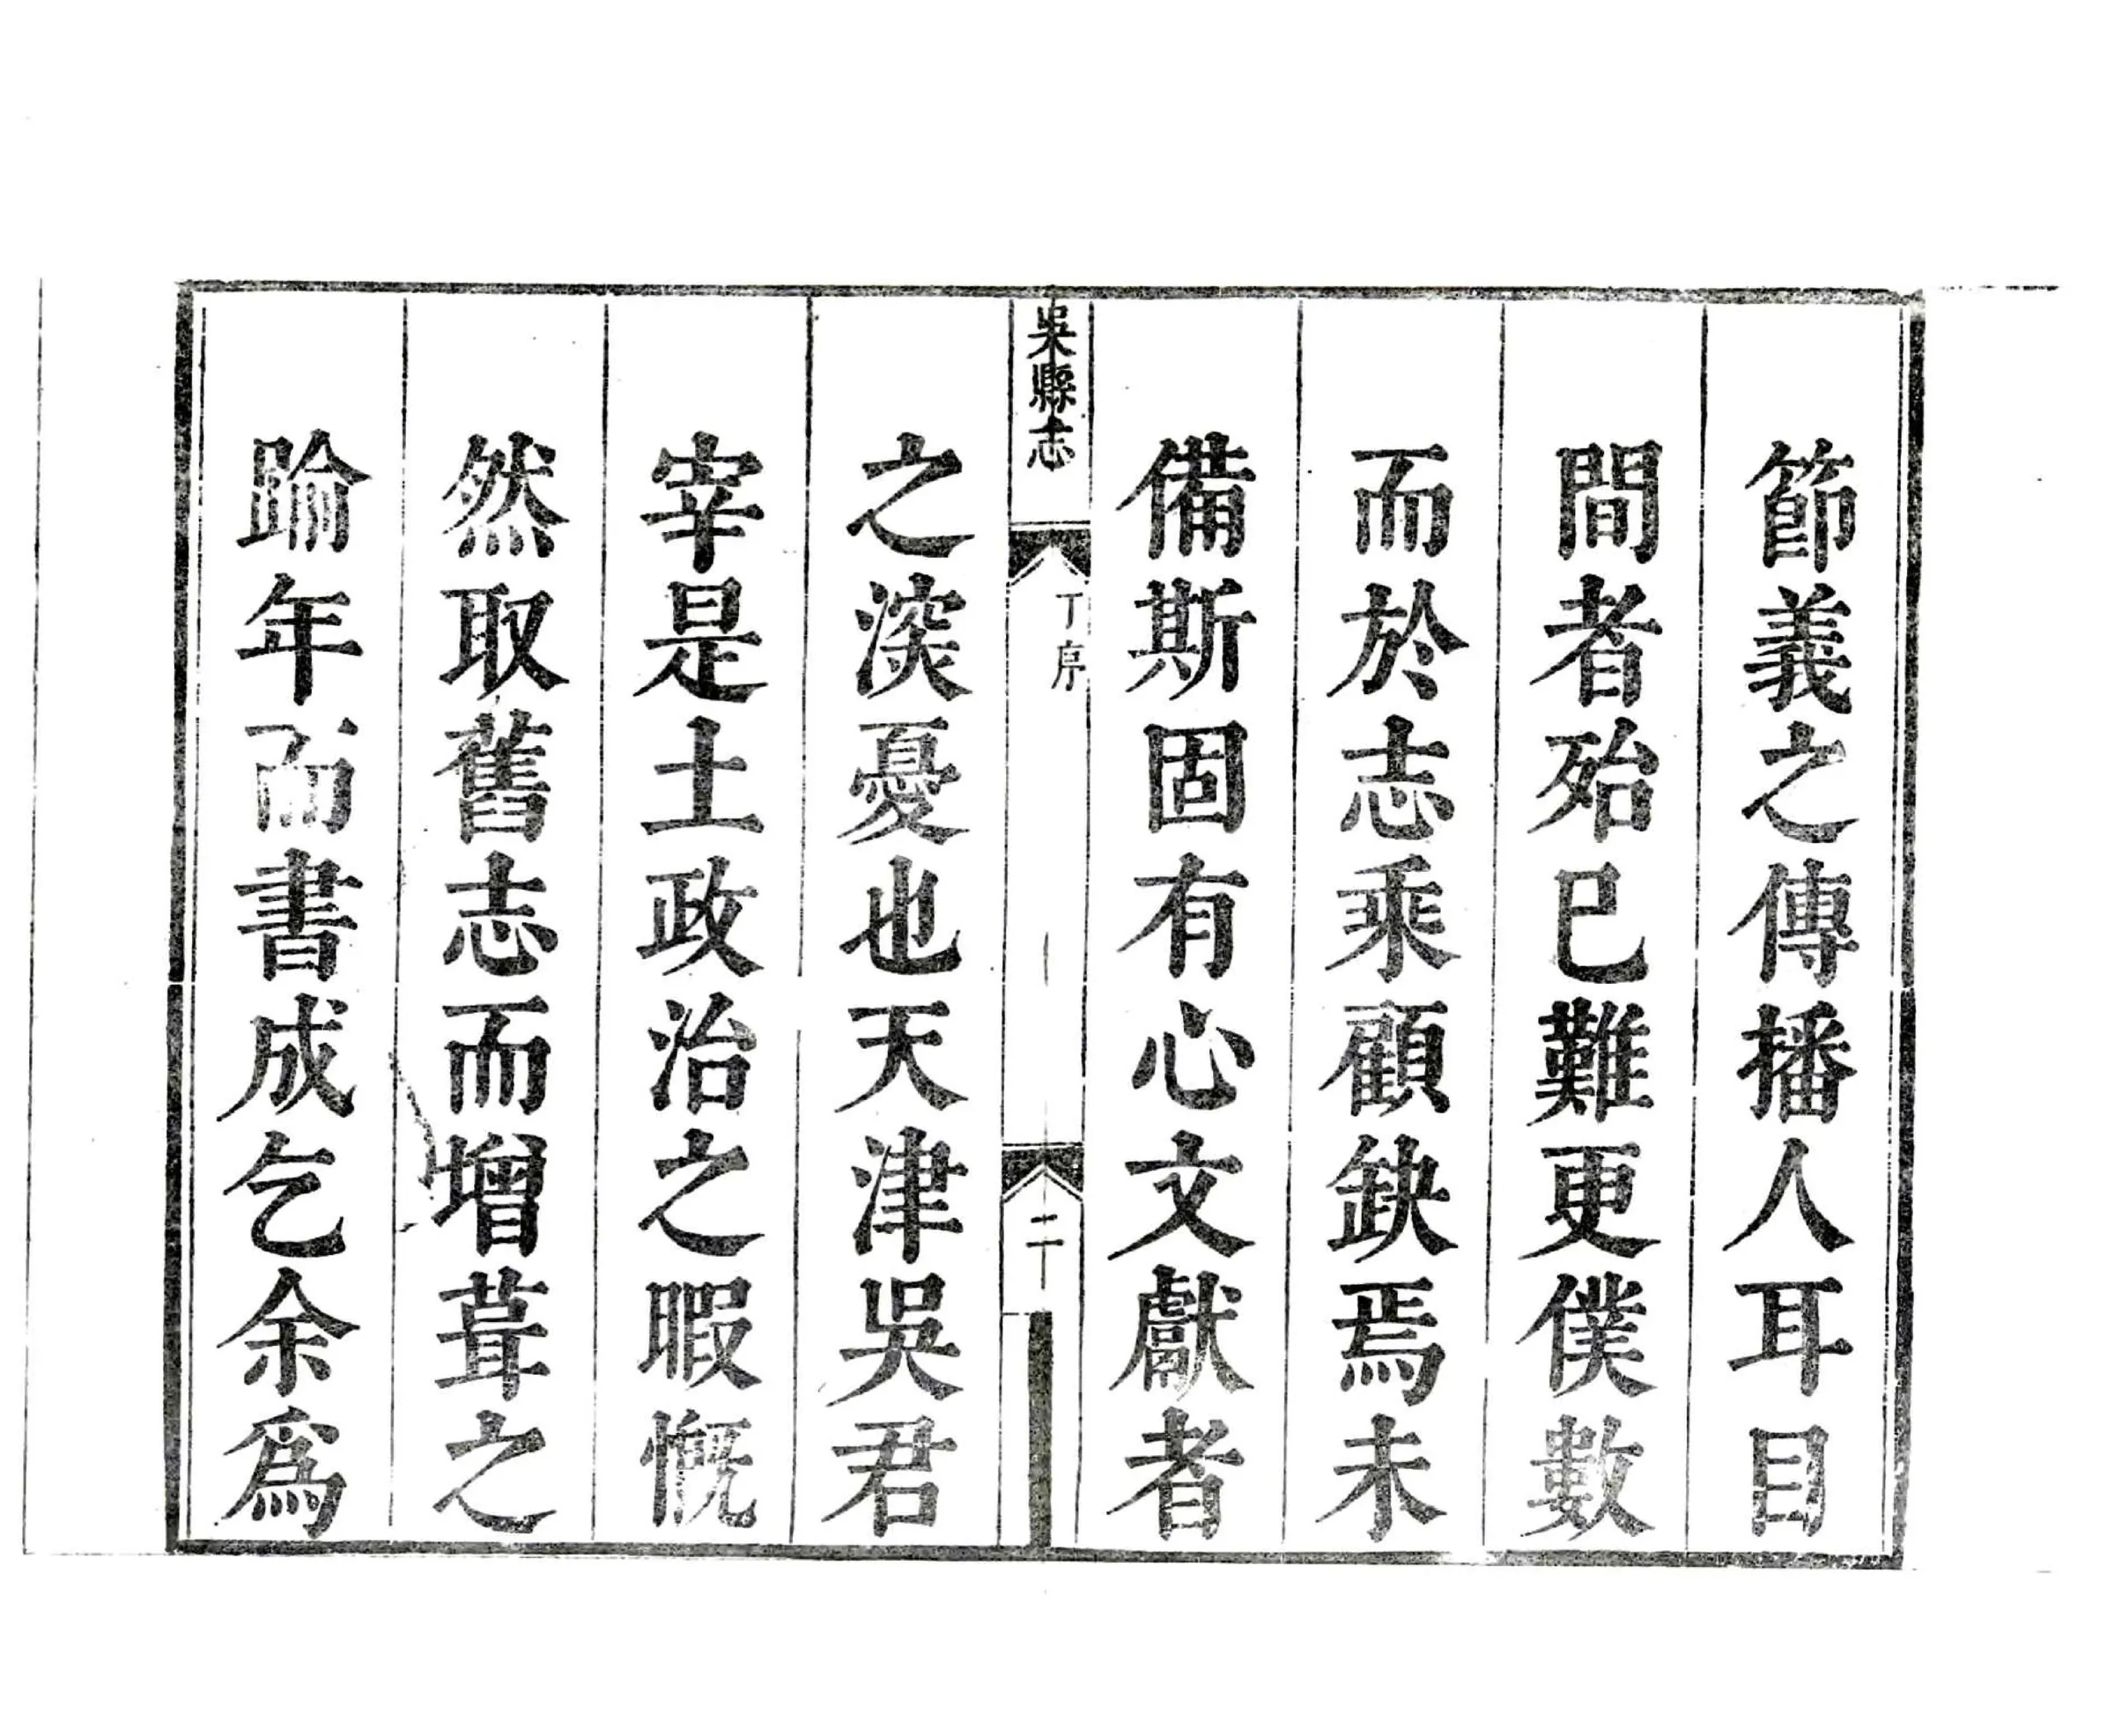 節義之傳播人耳目
間者殆已難更僕數
而於志乘顧缺焉未
備斯固有心文獻者
吳縣志
丁序
二
之深憂也天津吳君
宰是土政治之暇慨
然取舊志而增葺之
踰年而書成乞余爲